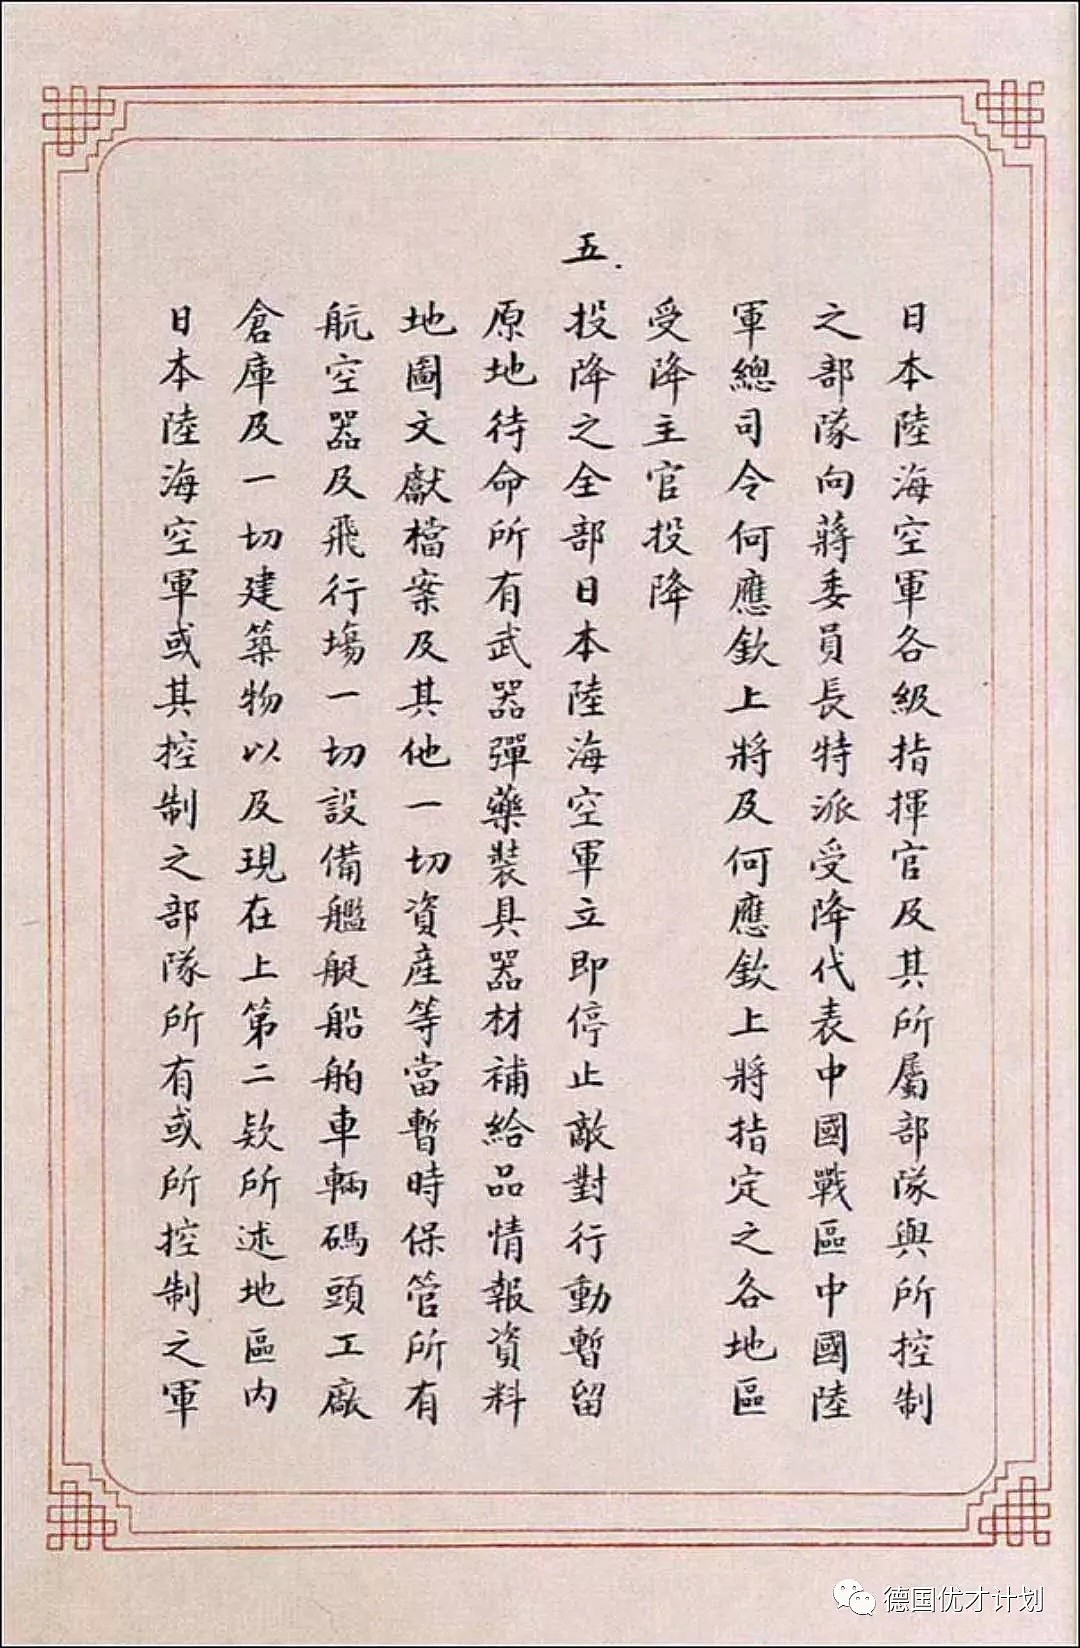 日本陸海空軍各級指揮官及其所屬部隊與所控制
之部隊向蔣委員長特派受降代表中國戰區中國陸
軍總司令何應欽上將及何應欽上將指定之各地區
受降主官投降
五.
投降之全部日本陸海空軍立即停止敵對行動暫留
原地待命所有武器彈藥裝具器材補給品情報資料
地圖文獻檔案及其他一切資產等當暫時保管所有
航空器及飛行場一切設備艦艇船舶車輛碼頭工廠
倉庫及一切建築物以及現在上第二款所述地區內
日本陸海空軍或其控制之部隊所有或所控制之軍
德国优才计划